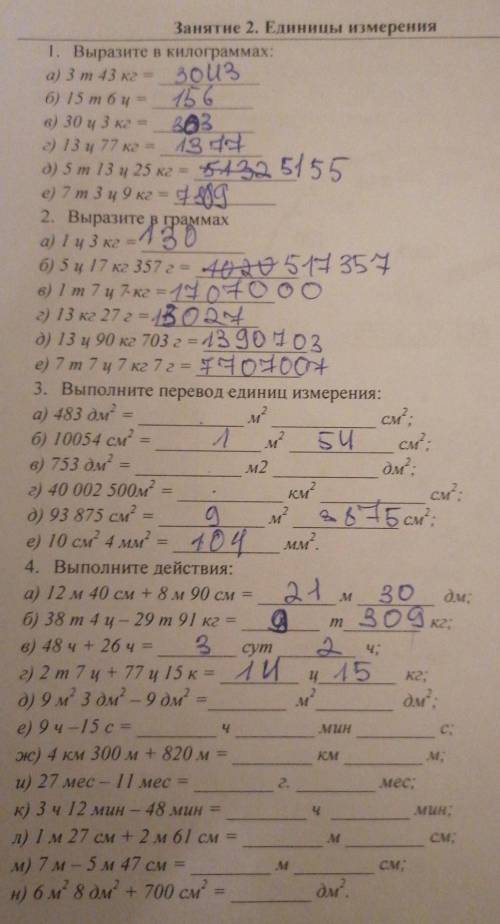 Занятие 2. Единицы измерения
1. Выразите в килограммах:
а) 3 т 43 кг = 3043
б) 15 т 6 ц = 156
в) 30 ц 3 кг = 303
г) 13 ц 77 кг = 1377
д) 5 т 13 ц 25 кг = 5132 5155
е) 7 т 3 ц 9 кг = 7309
2. Выразите в граммах
а) 1 ц 3 кг = 130
б) 5 ц 17 кг 357 г = 1020 517357
в) 1 т 7 ц 7 кг = 1707000
г) 13 кг 27 г = 13027
д) 13 ц 90 кг 703 г = 1390703
е) 7 т 7 ц 7 кг 7 г = 7707007
3. Выполните перевод единиц измерения:
а) 483 дм² = ______ м² ______ см²;
б) 10054 см² = 1 м² 54 см²;
в) 753 дм² = ______ м2 ______ дм²;
г) 40 002 500м² = ______ км² ______ см²;
д) 93 875 см² = 9 м² 3875 см²;
е) 10 см² 4 мм² = 104 мм².
4. Выполните действия:
а) 12 м 40 см + 8 м 90 см = 21 м 30 дм;
б) 38 т 4 ц – 29 т 91 кг = 9 т 309 кг;
в) 48 ч + 26 ч = 3 сут 2 ч;
г) 2 т 7 ц + 77 ц 15 к = 14 ц 15 кг;
д) 9 м² 3 дм² – 9 дм² = ______ м² ______ дм²;
е) 9 ч –15 с = ______ ч ______ мин ______ с;
ж) 4 км 300 м + 820 м = ______ км ______ м;
и) 27 мес – 11 мес = ______ г. ______ мес;
к) 3 ч 12 мин – 48 мин = ______ ч ______ мин;
л) 1 м 27 см + 2 м 61 см = ______ м ______ см;
м) 7 м – 5 м 47 см = ______ м ______ см;
н) 6 м² 8 дм² + 700 см² = ______ дм².